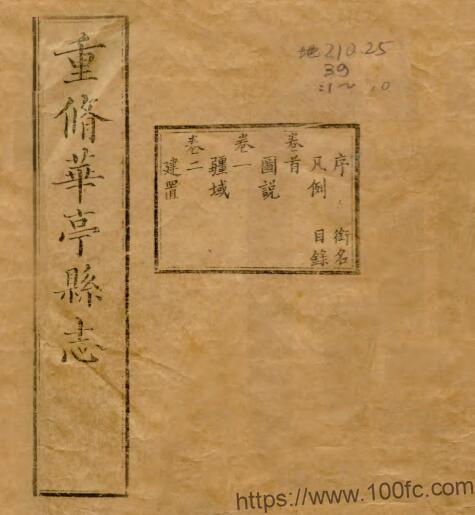 重脩華亭縣志
序 銜名
凡例 目錄
卷首
圖説
卷一
疆域
卷二
建置
地210.25
39
:1~ .0
https://www.100fc.com